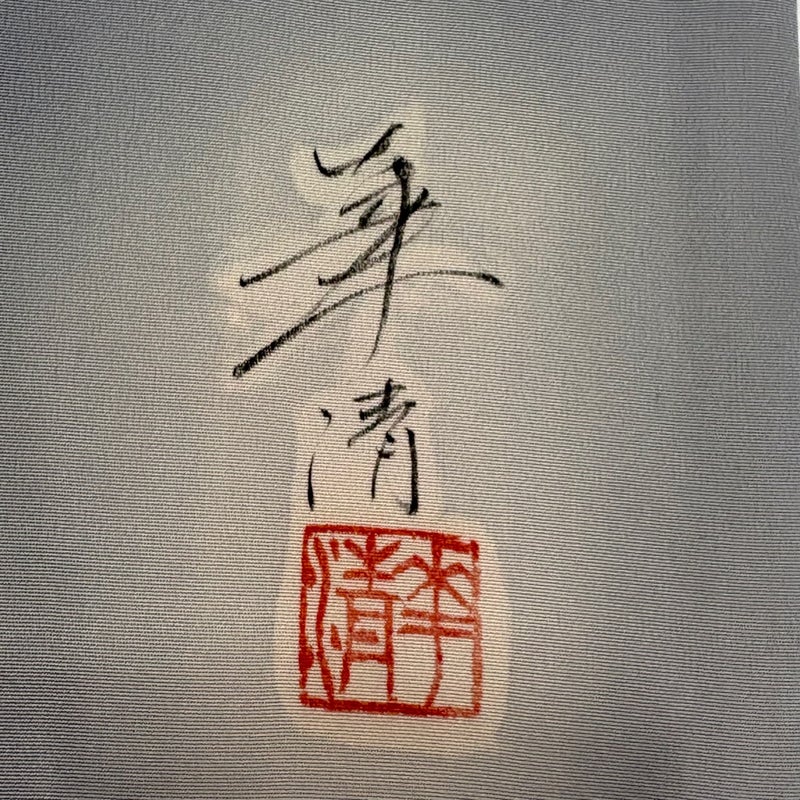 華清
華清